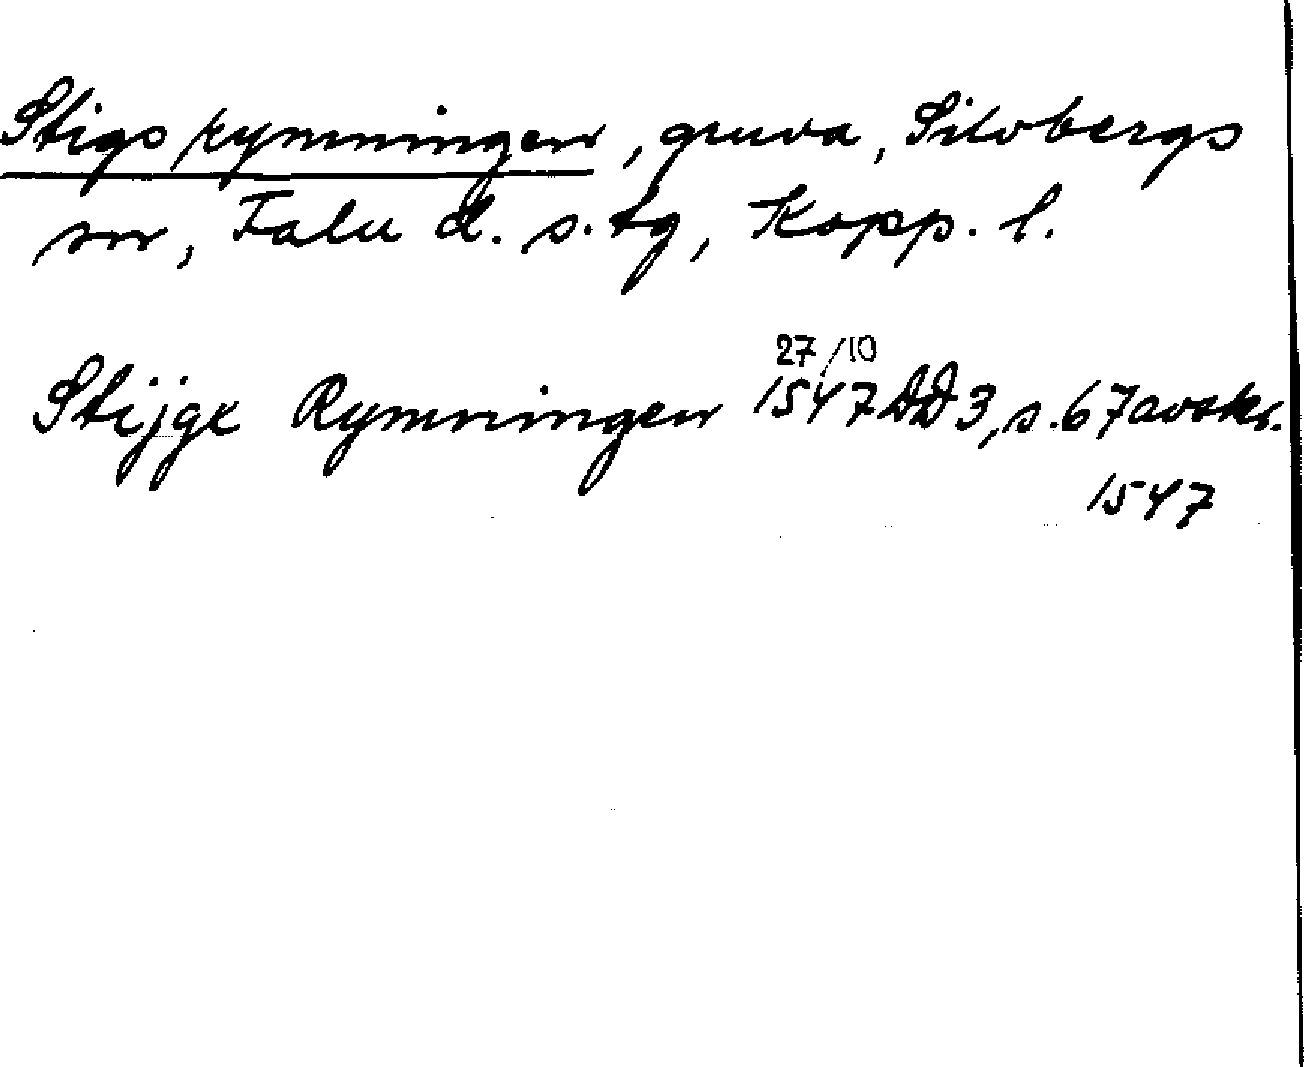 Stigsrymningen, gruva, Silvbergs
sn, Falu d. s. tg, Kopp. l.
Stijgx Rymningen 27/10 1547 DD 3, s. 67 avskr.
1547